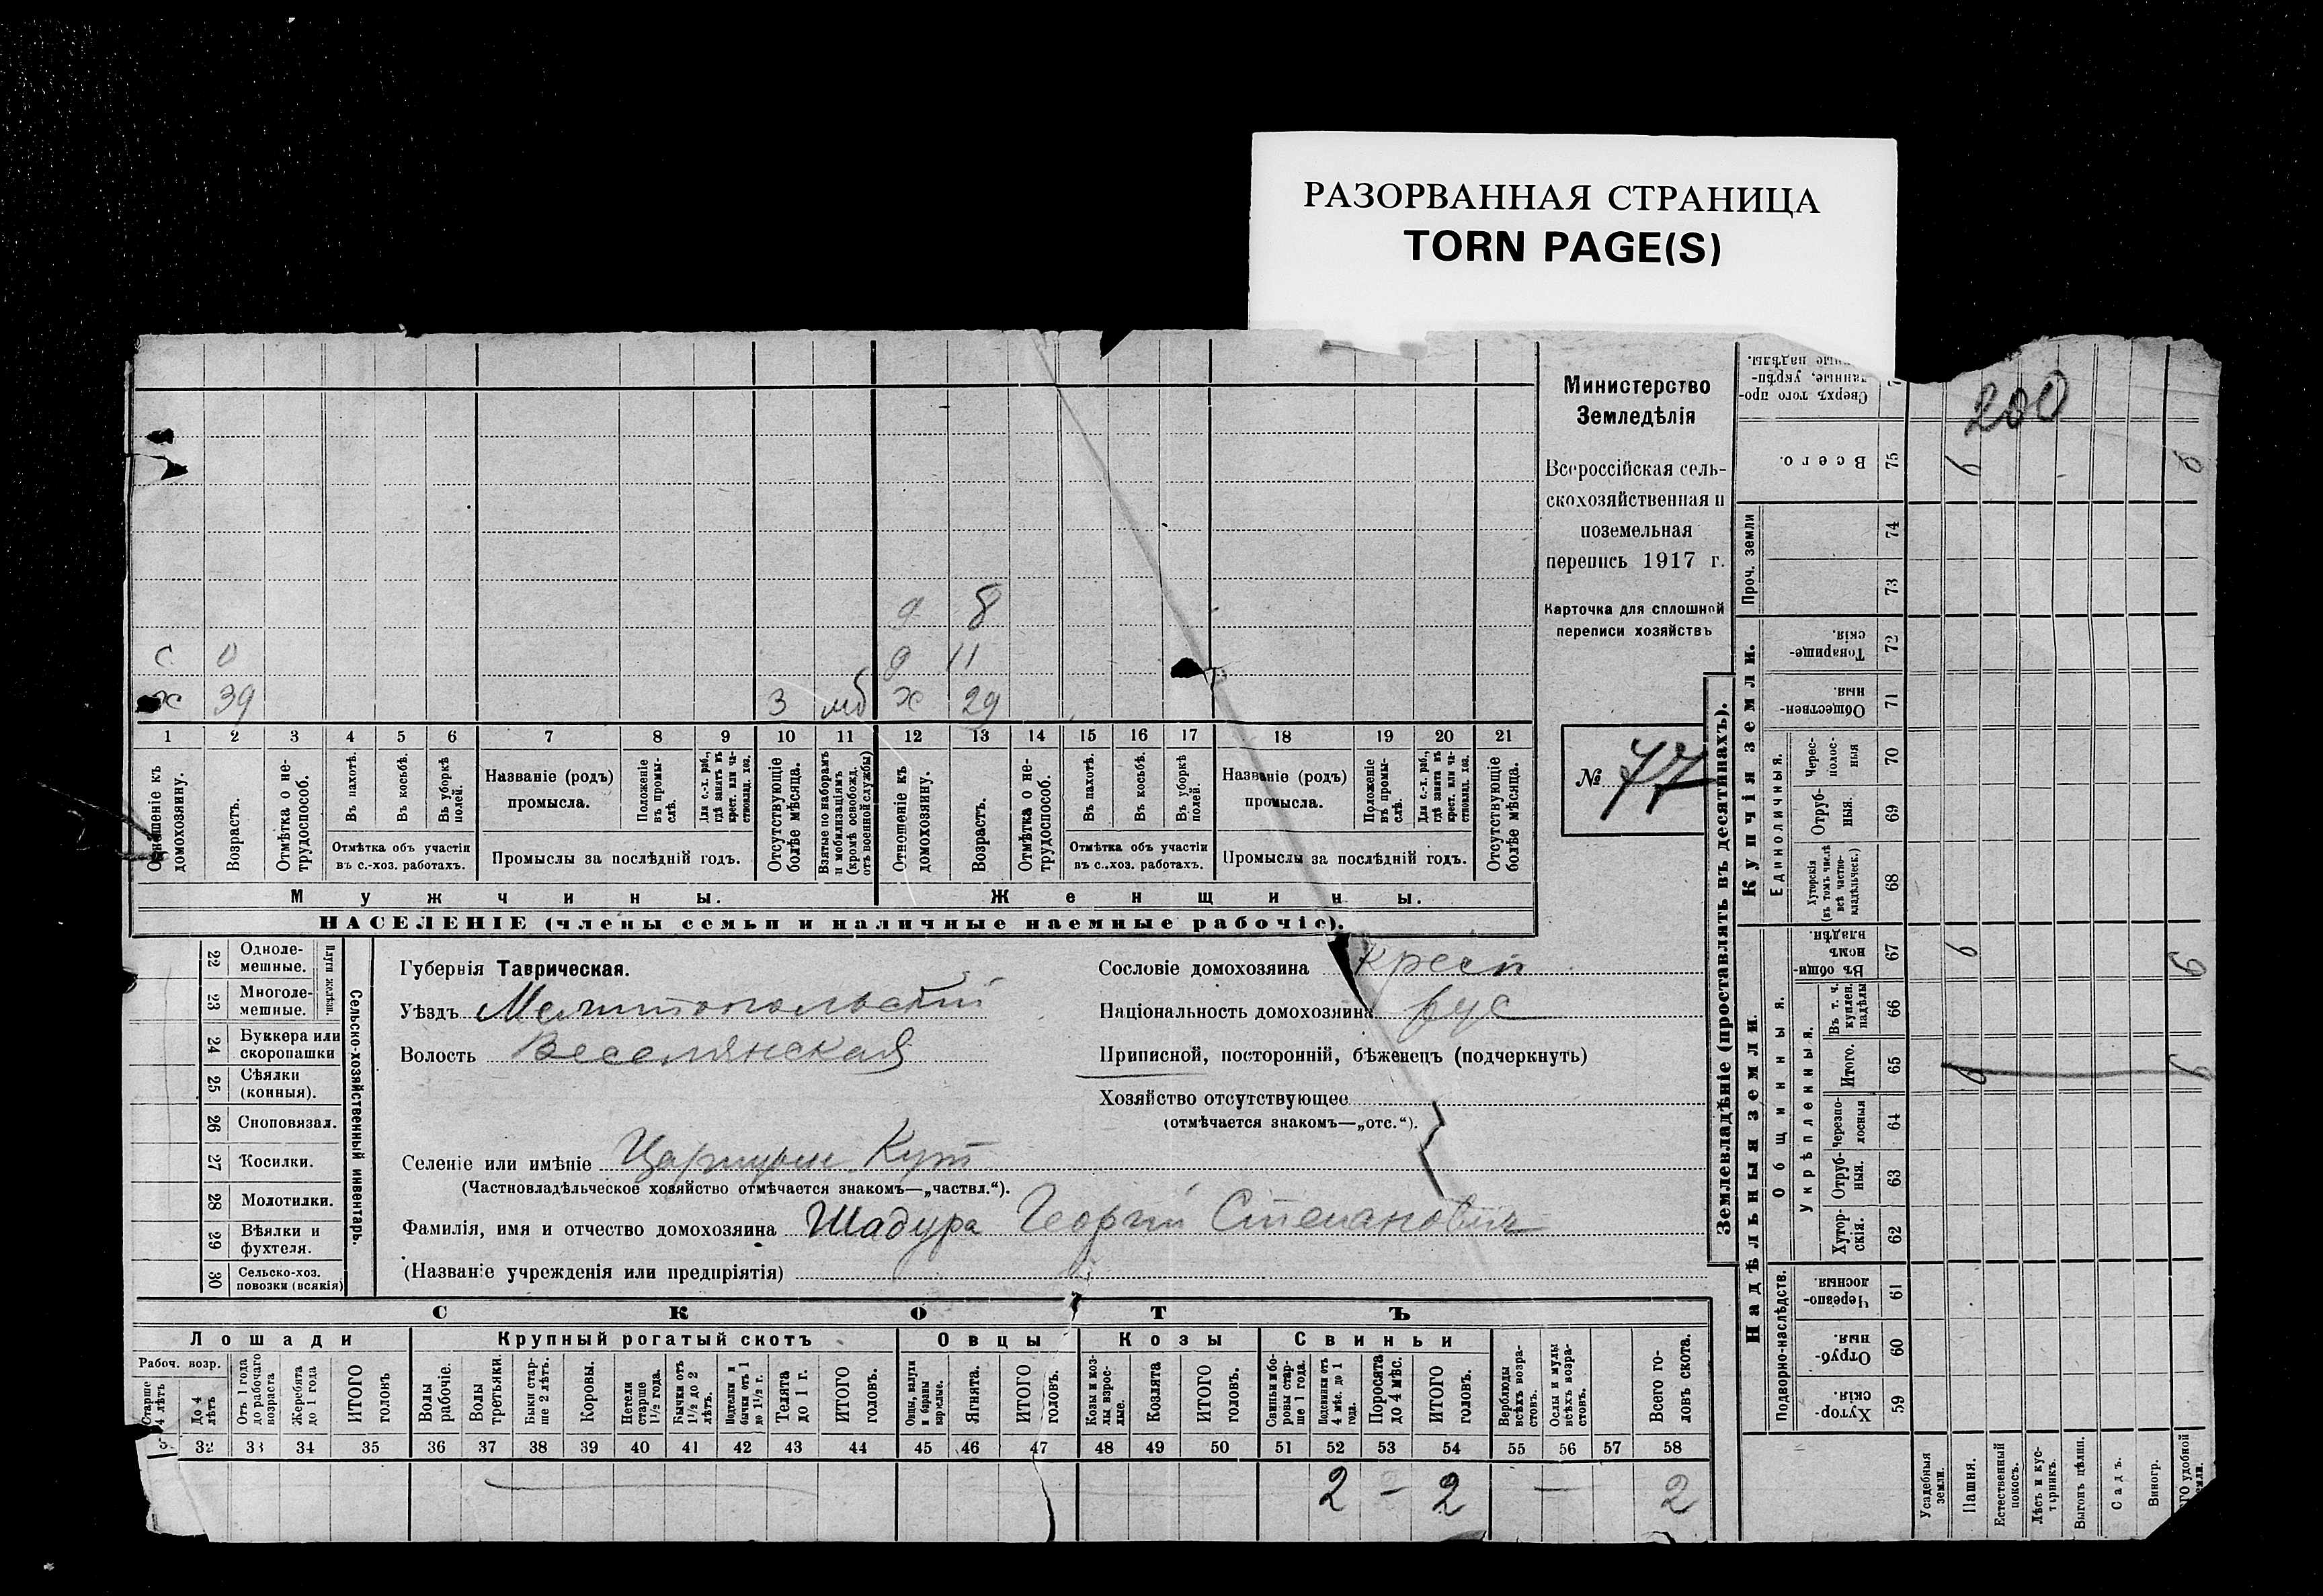 РАЗОРВАННАЯ СТРАНИЦА
TORN PAGE(S)
Министерство
Земледѣлія
Всероссійская сель-
скохозяйственная и
поземельная
перепись 1917 г.
Карточка для сплошной
переписи хозяйствъ
№ 77
200
д 8
с 0 д 11
х 39 3 мб х 29
1 2 3 4 5 6 7 8 9 10 11 12 13 14 15 16 17 18 19 20 21
Отношеніе къ домохозяину.
Возрастъ.
Отмѣтка о не-трудоспособ.
Въ пахотѣ.
Въ косьбѣ.
Въ уборкѣ полей.
Отмѣтка объ участіи
въ с.-хоз. работахъ.
Названіе (родъ)
промысла.
Положеніе въ промы-слѣ.
Для с.-х. раб., гдѣ занятъ въ крест. или ча-стновлад. хоз.
Промыслы за послѣдній годъ.
Отсутствующіе болѣе мѣсяца.
Взятые по наборамъ и мобилизаціямъ (кромѣ освобожд. отъ военной службы)
Отношеніе къ домохозяину.
Возрастъ.
Отмѣтка о не-трудоспособ.
Въ пахотѣ.
Въ косьбѣ.
Въ уборкѣ полей.
Отмѣтка объ участіи
въ с..хоз. работахъ.
Названіе (родъ)
промысла.
Положеніе въ промы-слѣ.
Для с.-х. раб., гдѣ занята въ крест. или ча-стновлад. хоз.
Промыслы за послѣдній годъ.
Отсутствующіе болѣе мѣсяца.
Мужчины. Женщины.
НАСЕЛЕНІЕ (члены семьи и наличные наемные рабочіе).
Сельско-хозяйственный инвентарь.
Плуги желѣзн.
22 Одноле-мешные.
23 Многоле-мешные.
24 Буккера или скоропашки
25 Сѣялки (конныя).
26 Сноповязал.
27 Косилки.
28 Молотилки.
29 Вѣялки и фухтеля.
30 Сельско-хоз. повозки (всякія)
Губернія Таврическая.
Уѣздъ Мелитопольский
Волость Веселянская
Сословіе домохозяина крест
Національность домохозяина рус
Приписной, посторонній, бѣженецъ (подчеркнуть)
Хозяйство отсутствующее
(отмѣчается знакомъ—„отс.“).
Селеніе или имѣніе Царицын Кут
(Частновладѣльческое хозяйство отмѣчается знакомъ—„частвл.“).
Фамилія, имя и отчество домохозяина Шадура Георгій Степанович
(Названіе учрежденія или предпріятія)
СКОТЪ
Лошади Крупный рогатый скотъ Овцы Козы Свиньи
Рабоч. возр.
Старше 4 лѣтъ
До 4 лѣтъ
Отъ 1 года до рабочаго возраста
Жеребята до 1 года
ИТОГО головъ
Волы рабочіе.
Волы третьяки.
Быки стар-ше 2 лѣтъ.
Коровы.
Нетели старше 1½ года.
Бычки отъ 1½ до 2 лѣтъ.
Подтелки и бычки отъ 1 до 1½ г.
Телята до 1 г.
ИТОГО головъ.
Овцы, валухи и бараны взрослые.
Ягнята.
ИТОГО головъ.
Козы и коз-лы взрос-лые.
Козлята
ИТОГО головъ.
Свиньи бо-ровы стар-ше 1 года.
Подсвинки отъ 4 мѣс. до 1 года.
Поросята до 4 мѣс.
ИТОГО головъ.
Верблюды всѣхъ возра-стовъ.
Ослы и мулы всѣхъ возра-стовъ.
Всего го-ловъ скота.
32 33 34 35 36 37 38 39 40 41 42 43 44 45 46 47 48 49 50 51 52 53 54 55 56 57 58
2 – 2 — 2
Землевладѣніе (проставлять въ десятинахъ).
Купчія земли.
Надѣльныя земли.
Сверхъ того про-данные, укрѣп-
Всего. 75
Проч. земли 74 73
Товарище-скія. 72
Обществен-ныя. 71
Единоличныя.
Черес-полос-ныя 70
Отруб-ныя. 69
Хуторскія (въ томъ числѣ всѣ частно-владѣльческ.) 68
Общинныя.
Въ общи-номъ владѣн. 67
Укрѣпленныя.
Въ т. ч. куплен. надѣлы 66
Итого. 65
Черезпо-лосныя 64
Отруб-ныя. 63
Хутор-скія. 62
Подворно-наслѣдств.
Черезпо-лосныя. 61
Отруб-ныя. 60
Хутор-скія. 59
Усадебныя земли.
Пашня.
Естественный покосъ.
Лѣсъ и кус-тарникъ.
Выгонъ цѣлин.
Садъ.
Виногр.